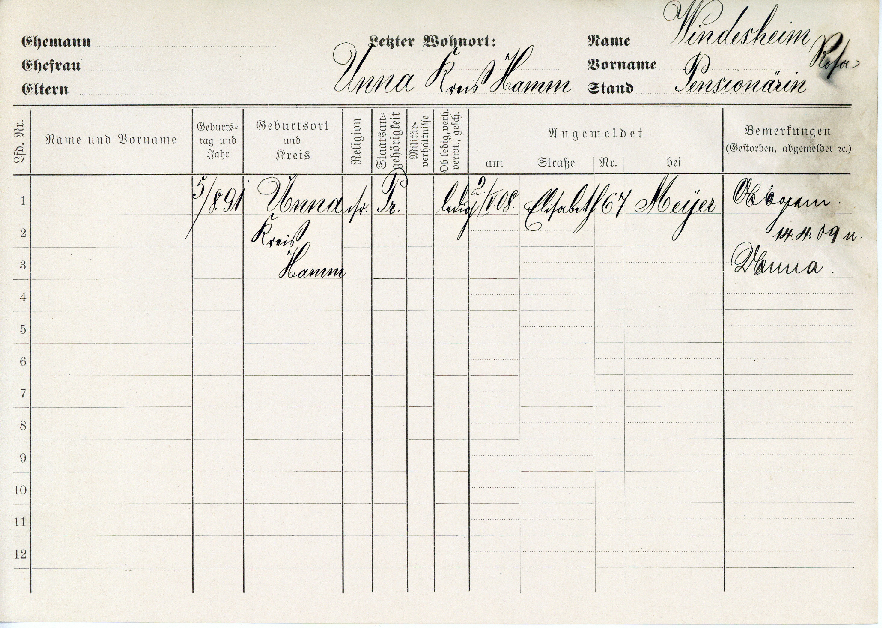 Ehemann Letzter Wohnort: Name Windesheim
Ehefrau Vorname Rosa
Eltern Unna Kreis Hamm Stand Pensionärin
Lfd. Nr. Name und Vorname Geburts-tag und Jahr Geburtsort und Kreis Religion Staatsan-gehörigkeit Militär-verhältnisse Ob ledig, verh. verwit., gesch. Angemeldet Bemerkungen
am Straße Nr. bei (Gestorben, abgemeldet ec.)
1 5/8 91 Unna isr. Pr. ledig 2/5 08 Elisabeth 67 Meijer
2 Kreis 14.4.09 n.
3 Hamm Unna.
4
5
6
7
8
9
10
11
12